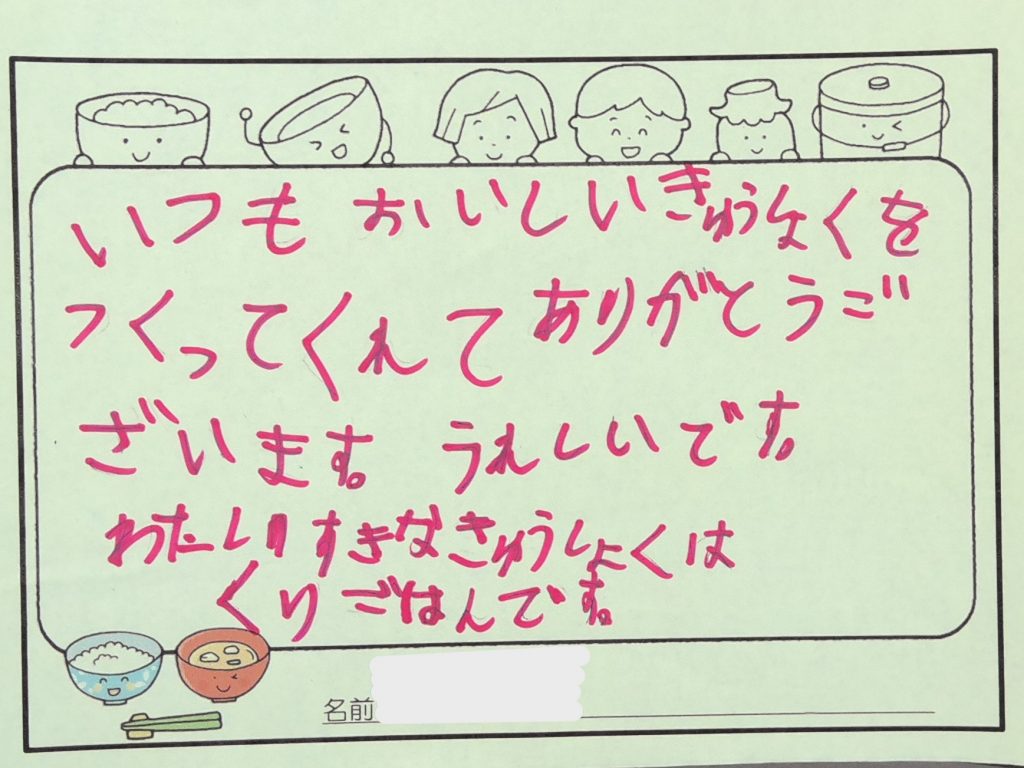 いつも おいしいきゅうしょくを
つくってくれて ありがとうご
ざいます。 うれしいです。
わたしのすきなきゅうしょくは
くりごはんです。
名前